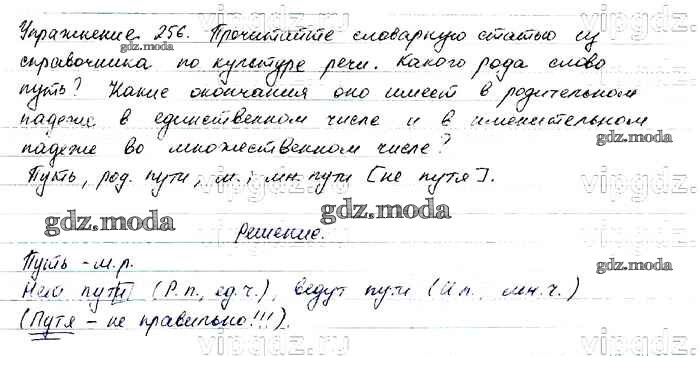 Упражнение 256. Прочитайте словарную статью из
справочника по культуре речи. Какого рода слово
путь? Какие окончания оно имеет в родительном
падеже в единственном числе и в именительном
падеже во множественном числе?
Путь, род. пути, м.; мн. пути [не путя].
Решение.
Путь - м.р.
Нет пути (Р.п., ед.ч.), ведут пути (И.п., мн.ч.)
(Путя - не правильно!!!).
vipgdz.ru
gdz.moda